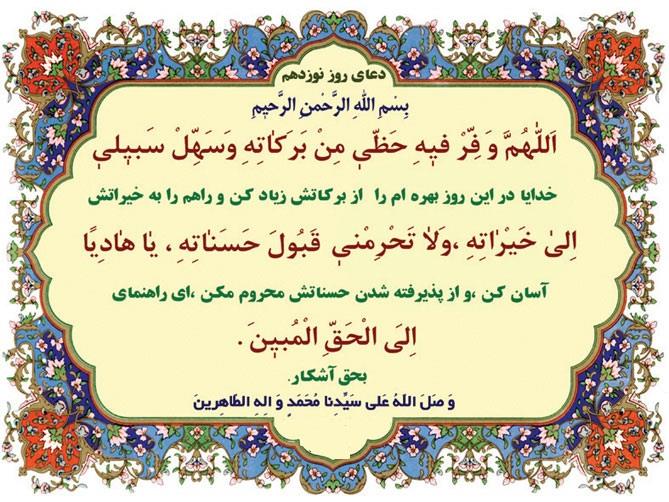 دعای روز نوزدهم
بِسْمِ اللهِ الرَّحْمنِ الرَّحیمِ
اَللّٰهُمَّ وَ فِّرْ فیهِ حَظّی مِنْ بَرَکٰاتِهِ وَسَهِّلْ سَبیلی
خدایا در این روز بهره ام را از برکاتش زیاد کن و راهم را به خیراتش
اِلیٰ خَیْرٰاتِهِ ،وَلاٰ تَحْرِمْنی قَبُولَ حَسَنٰاتِهِ ، یٰا هٰادِیًا
آسان کن ،و از پذیرفته شدن حسناتش محروم مکن ،ای راهنمای
اِلَی الْحَقِّ الْمُبینَ .
بحق آشکار.
وَ صَلَ اللهُ عَلی سَیِّدِنا مُحَمَدٍ وَ الِهِ الطّاهِرینَ